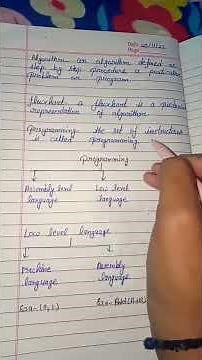 Algorithm an algorithm defined as
step by step procedure a particular
problem on program.
flowchart a flowchart is a
representation of algorithm
programming: the set of instructions
is called programming.
programming
Assembly level Low level
language language
Low level language
Machine Assembly
language language